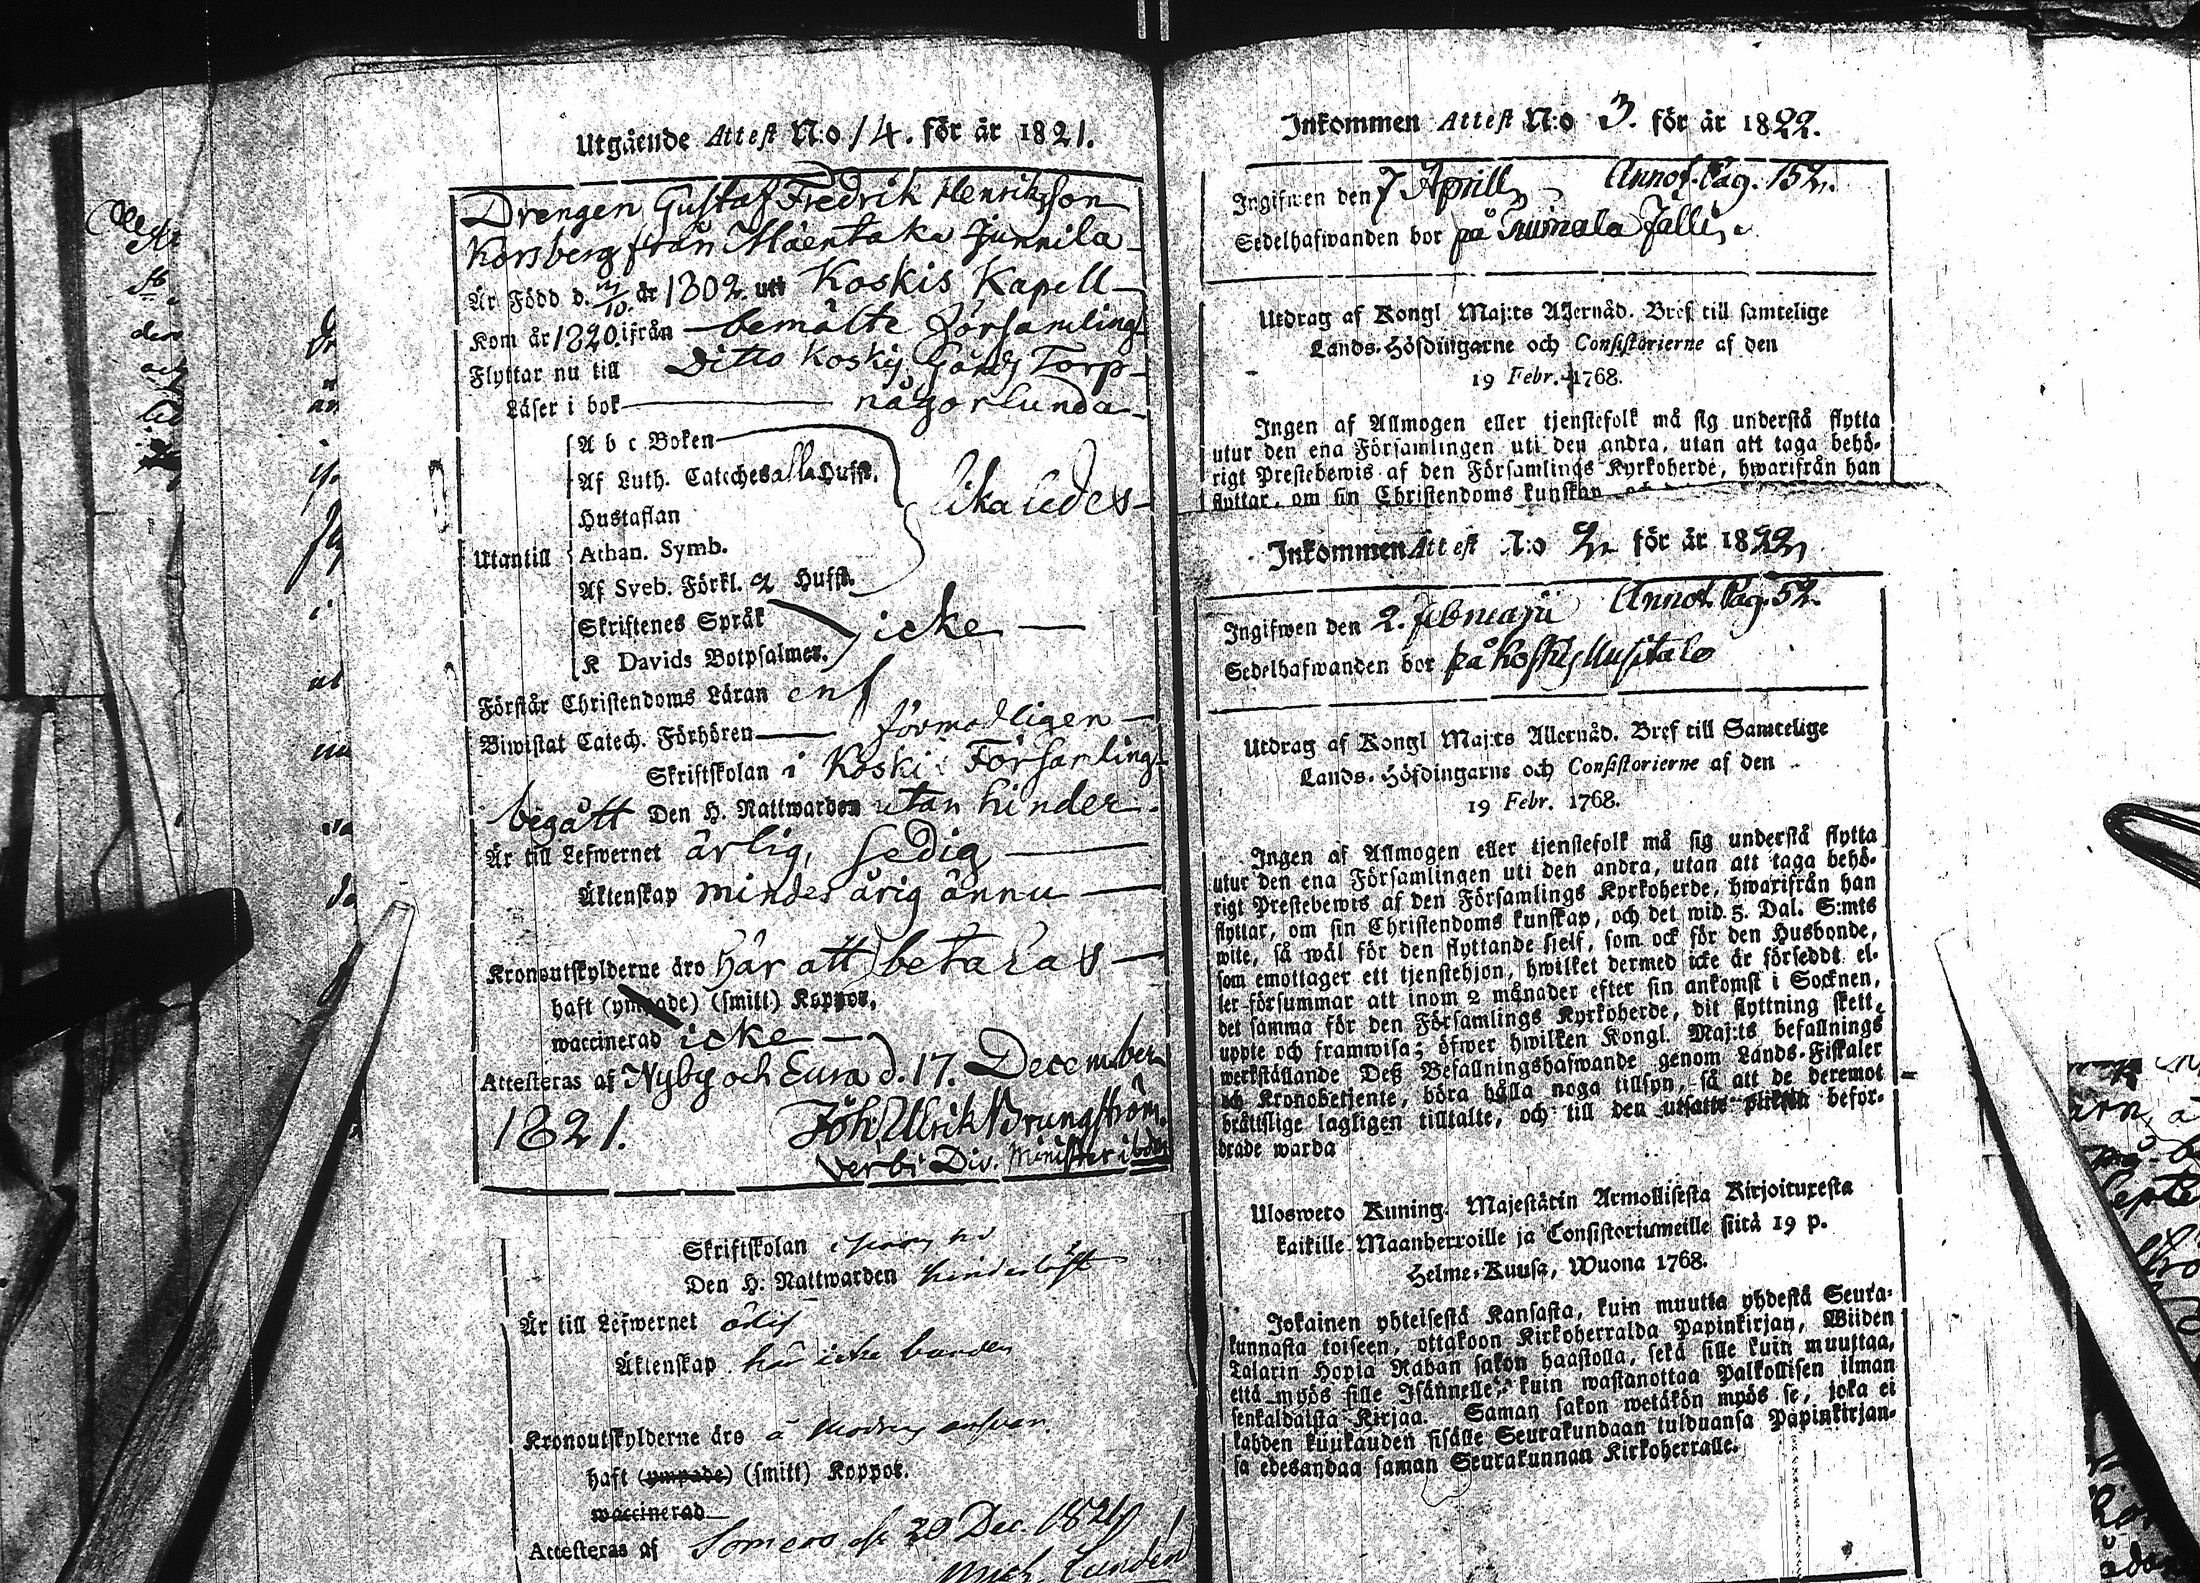 Utgående Attest N:o 14. för år 1821.
Drengen Gustaf Fredrik Henriksson
Korsberg från Mäentaka Junnila
Är Född d. år 1802. uti Koskis Kapell
Kom år 1820 ifrån bemälte församling
Flyttar nu till Ditto Koskis Gårds Torp
Läser i bok någorlunda
A b c Boken
Af Luth. Catechesalla Hufst.
Hustaflan
likaledes
Utantill
Athan. Symb.
Af Sveb. Förkl. 2 Hufst.
Skriftenes Språk
icke
K Davids Botpsalmer.
Förstår Christendoms Läran
Biwistat Catech. Förhören förmodligen
Skriftskolan i Koski Församling
begått Den H. Nattwarden utan hinder.
Är till Lefwernet ärlig, sedig
Äktenskap mindesårig ännu
Kronoutskylderne äro här att betalas
haft (ympade) (smitt) Koppor.
waccinerad icke
Attesteras af Nyby och Eura d. 17. December
1821. Joh Ulrik Brungström.
Verbi Div. Minister ibdm
Skriftskolan
Den H. Nattwarden hinderlöst
Är till Lefwernet ärlig
Äktenskap här icke bunden
Kronoutskylderne äro å
haft (ympade) (smitt) Koppor.
waccinerad
Attesteras af Somero d. 20 Dec. 1821
Mich. Lundén
Inkommen Attest N:o 3. för år 1822.
Ingifwen den 7 Aprill Annot. Pag. 152.
Sedelhafwanden bor på
Utdrag af Kongl Maj:ts Allernåd. Bref till samtelige
Lands-Höfdingarne och Consistorierne af den
19 Febr. 1768.
Ingen af Allmogen eller tjenstefolk må sig understå flytta
utur den ena Församlingen uti den andra, utan att taga behö-
rigt Prestebewis af den Församlings Kyrkoherde, hwarifrån han
flyttar, om sin Christendoms kunskap
Inkommen Attest N:o 2 för år 1822
Ingifwen den 2. februarii Annot. Pag. 52.
Sedelhafwanden bor på Koskis Uusitalo
Utdrag af Kongl Maj:ts Allernåd. Bref till Samtelige
Lands-Höfdingarne och Consistorierne af den
19 Febr. 1768.
Ingen af Allmogen eller tjenstefolk må sig understå flytta
utur den ena Församlingen uti den andra, utan att taga behö-
rigt Prestebewis af den Församlings Kyrkoherde, hwarifrån han
flyttar, om sin Christendoms kunskap, och det wid 5. Dal. S:mts
wite, så wäl för den flyttande sjelf, som ock för den Husbonde,
som emottager ett tjenstehjon, hwilket dermed icke är försedt el-
ler försummar att inom 2 månader efter sin ankomst i Socknen,
det samma för den Församlings Kyrkoherde, dit flyttning skett,
uppte och framwisa; öfwer hwilken Kongl. Maj:ts befallnings
werkställande Deß Befallningshafwande genom Lands-Fiskaler
och Kronobetjente, böra hålla noga tillsyn, så att de deremot
bråttslige lagligen tilltalte, och till den utsatte plikten befor-
drade warda
Ulosweto Kuning. Majestätin Armollisesta Kirjoituresta
kaikille Maanherroille ja Consistoriumeille siitä 19 p.
Helme-Kuusa, Wuona 1768.
Jokainen yhteisestä Kansasta, kuin muutta yhdestä Seura-
kunnasta toiseen, ottakoon Kirkoherralda Papinkirjan, Wiiden
Talarin Hopia Rahan sakon haastolla, sekä sille kuin muuttaa,
että myös sille Isännelle, kuin wastanottaa Palkollisen ilman
senkaldaista Kirjaa. Saman sakon wetäkön myös se, joka ei
kahden kuukauden sisälle Seurakundaan tulduansa Papinkirjan-
sa edesandaa saman Seurakunnan Kirkoherralle.